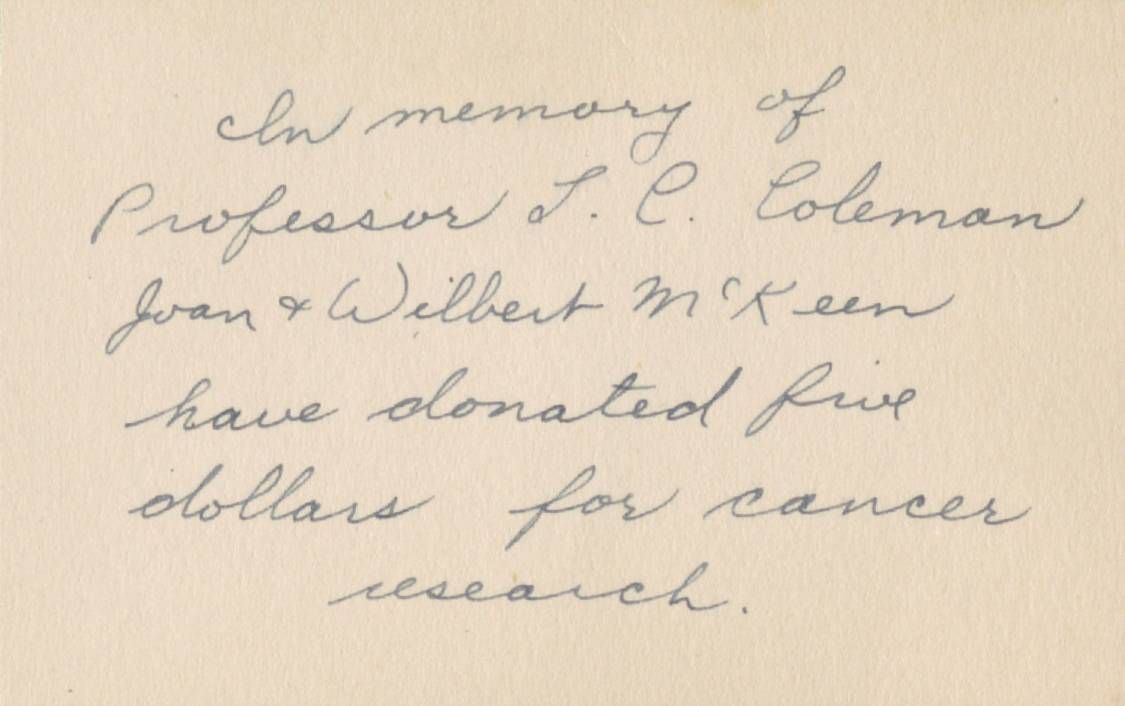 In memory of
Professor L. C. Coleman
Joan & Wilbert McKeen
have donated five
dollars for cancer
research.